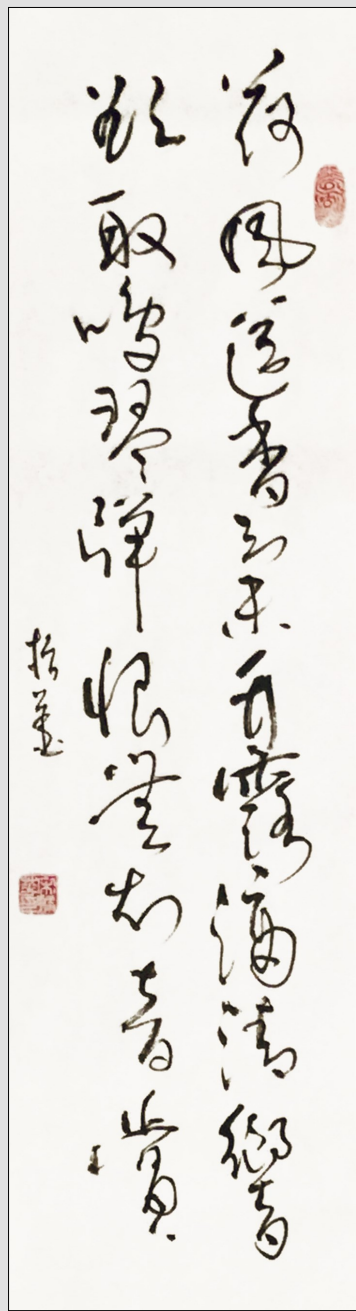 荷風送香氣竹露滴清響
欲取鳴琴彈恨無知音賞